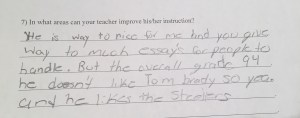 7) In what areas can your teacher improve his/her instruction?
He is way to nice for me and you give
way to much essays for people to
handle. But the overall grade 94
he doesn't like Tom brady so yeah
and he likes the Steelers